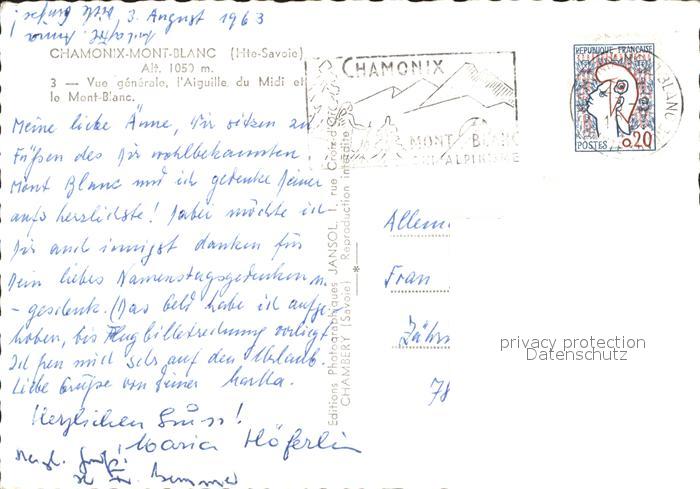 3. August 1963
CHAMONIX-MONT-BLANC (Hte-Savoie)
Alt. 1050 m.
3 — Vue générale, l'Aiguille du Midi et
le Mont-Blanc.
Meine liebe Änne, Wir sitzen zu
Füßen des Dir wohlbekannten
Mont Blanc und ich gedenke Deiner
aufs herzlichste! Dabei möchte ich
Dir auch innigst danken für
Dein liebes Namenstagsgedenken u.
- geschenk. (Das Geld habe ich aufge-
hoben, bis Flugbilletrechnung vorliegt
Ich freu mich sehr auf den Urlaub.
Liebe Grüße von Deiner
Herzlichen Gruss!
Maria Höferlin
Herzl. Grüße
CHAMONIX
MONT-BLANC
ALPINISME
REPUBLIQUE FRANÇAISE
POSTES 0,20
BLANC
Editions Photographiques JANSOL, 1, rue Croix-d'Or
CHAMBERY (Savoie) Reproduction interdite
Allem
Frau
Zähr
78
privacy protection
Datenschutz